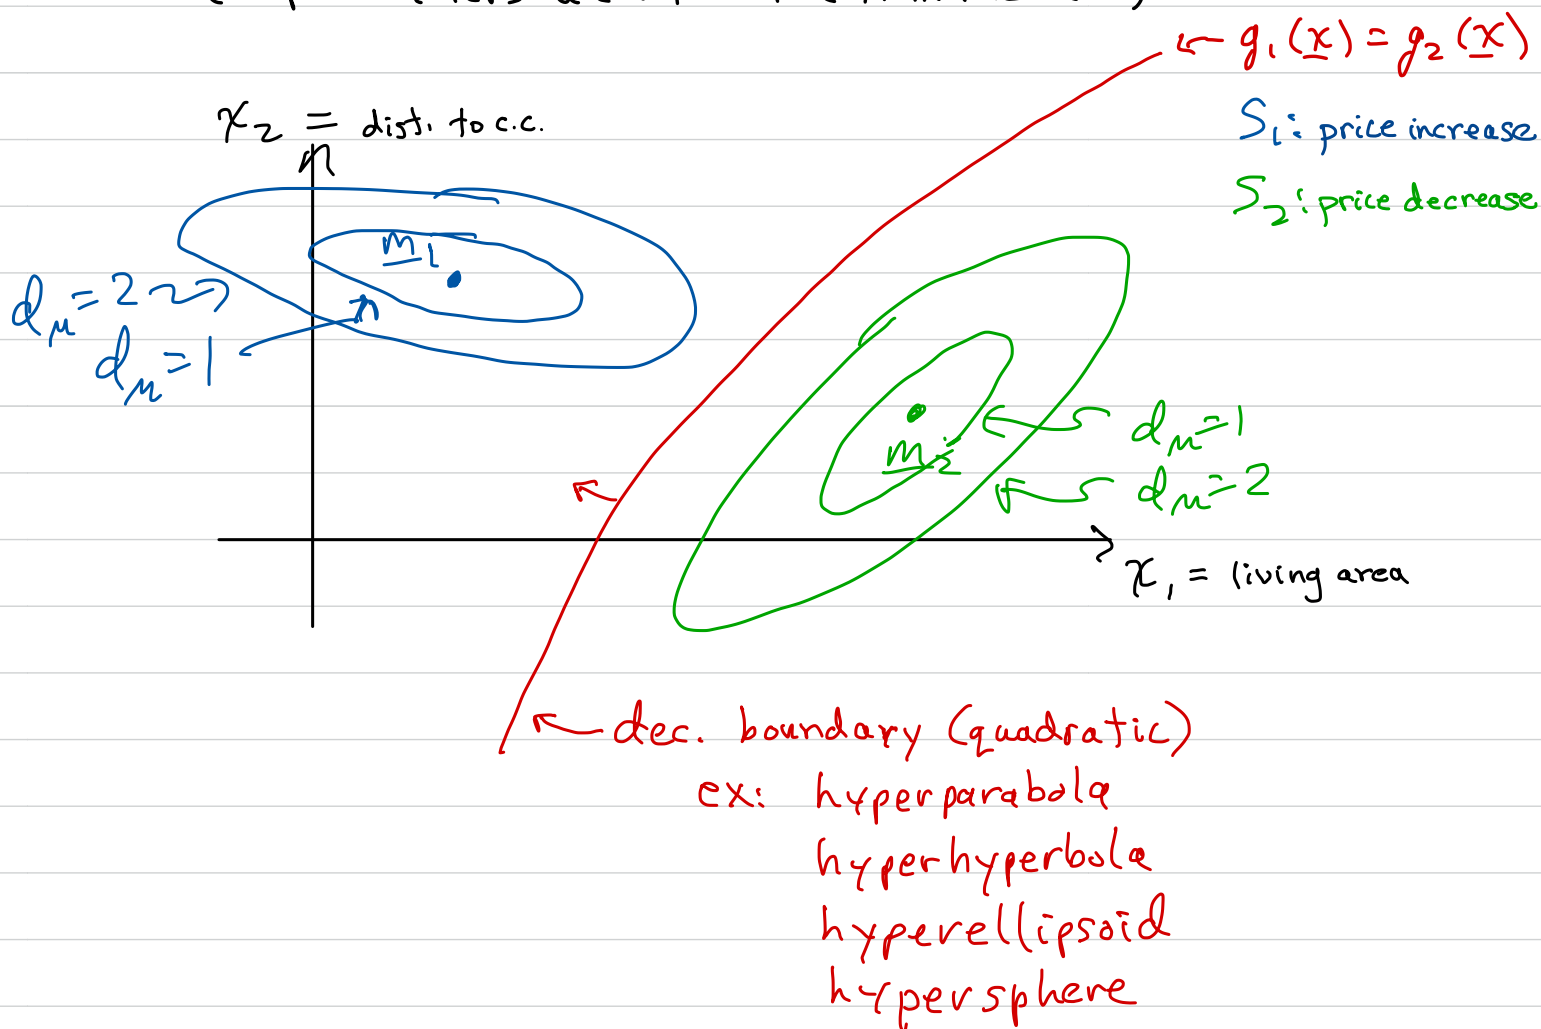 g₁(x) = g₂(x)
x₂ = dist. to c.c.
S₁: price increase
S₂: price decrease
m₁
d_M = 2
d_M = 1
m₂
d_M = 1
d_M = 2
x₁ = living area
dec. boundary (quadratic)
ex: hyperparabola
hyperhyperbola
hyperellipsoid
hypersphere